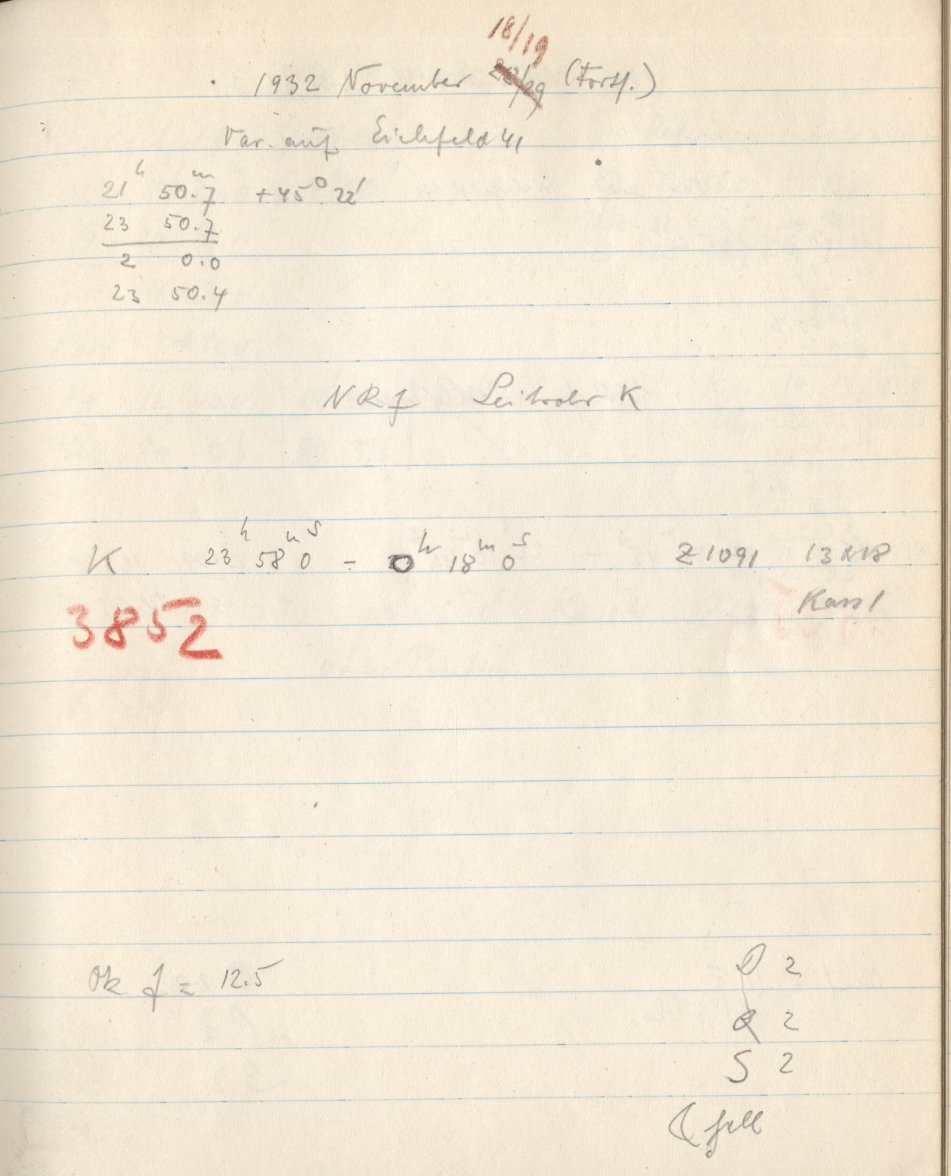 18/19
1932 November 28/29 (Forts.)
Var. auf Eichfeld 41
21h 50.7m +45° 22'
23 50.7
2 0.0
23 50.4
NRf Leitrohr K
K 23h 58m 0s - 0h 18m 0s Z1091 13x18
3852 Kass 1
Ok f = 12.5 D 2
R 2
S 2
☾ hell